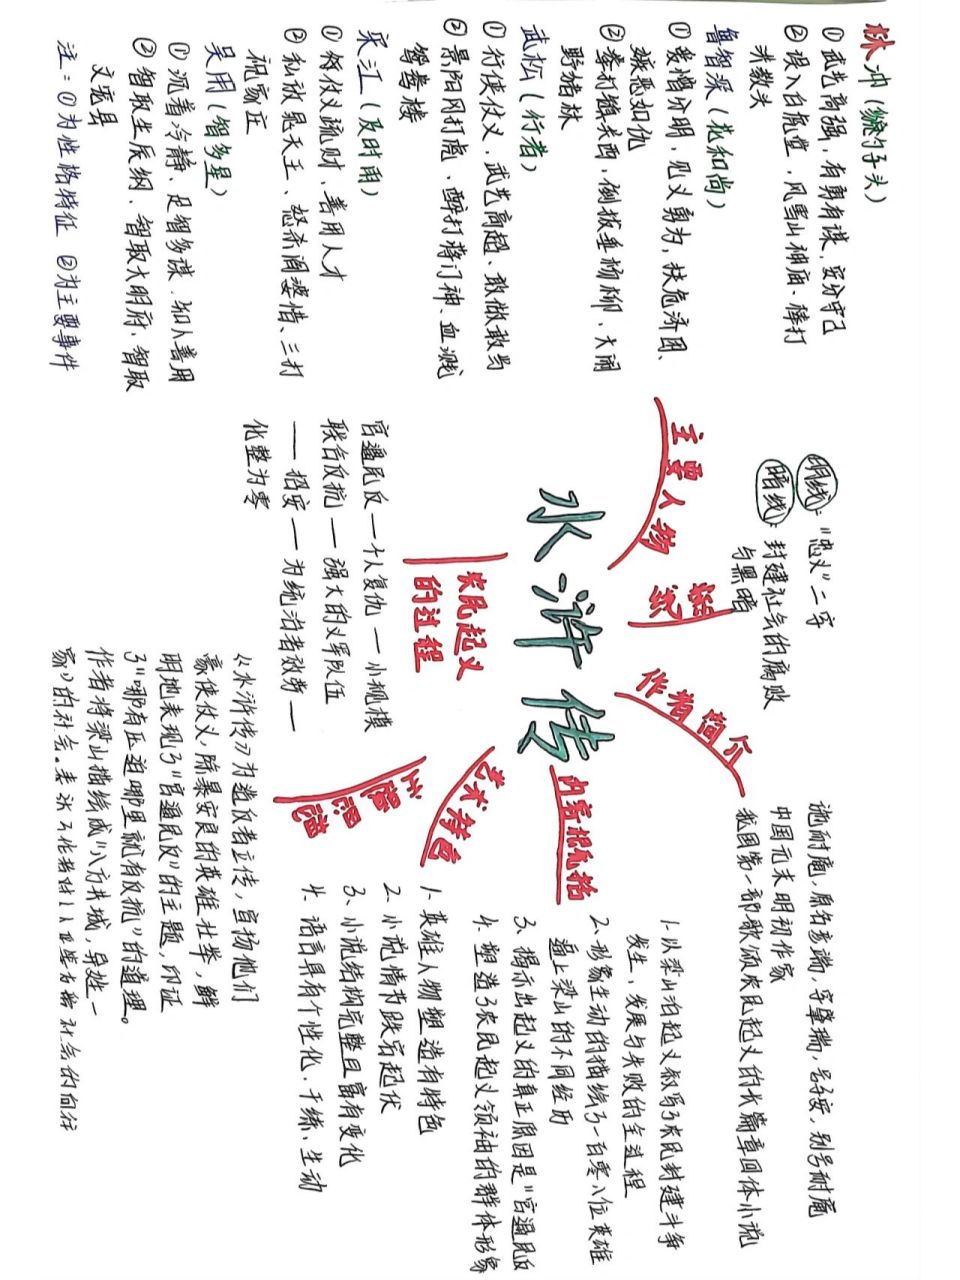 林冲(豹子头)
①武艺高强,有勇有谋,安分守己
②误入白虎堂,风雪山神庙、棒打
洪教头
鲁智深(花和尚)
①爱憎分明,见义勇为,扶危济困、
嫉恶如仇
②拳打镇关西,倒拔垂杨柳、大闹
野猪林
武松(行者)
①行侠仗义,武艺高超、敢做敢当
②景阳冈打虎、醉打蒋门神、血溅
鸳鸯楼
宋江(及时雨)
①仗义疏财,善用人才
②私放晁天王、怒杀阎婆惜、三打
祝家庄
吴用(智多星)
①沉着冷静、足智多谋、知人善用
②智取生辰纲、智取大明府、智取
文安县
注:①为性格特征 ②为主要事件
主要人物
明线:"忠义"二字
暗线:封建社会的腐败
与黑暗
线
水浒传
作者简介
施耐庵,原名彦端,字肇瑞,号子安,别号耐庵
中国元末明初作家
我国第一部歌颂农民起义的长篇章回体小说
内容概括
1.以梁山泊起义叙写了农民封建斗争
发生、发展与失败的全过程
2.形象生动的描绘了一百零八位英雄
逼上梁山的不同经历
3.揭示出起义的真正原因是"官逼民反
4.塑造了农民起义领袖的群体形象
艺术特色
1.英雄人物塑造有特色
2.小说情节跌宕起伏
3.小说结构完整且富有变化
4.语言具有个性化、干练、生动
主题思想
《水浒传》为造反者立传,宣扬他们
豪侠仗义,除暴安良的英雄壮举,鲜
明地表现了"官逼民反"的主题,印证
了"哪有压迫哪里就有反抗"的道理。
作者将梁山描绘成"八方共域,异姓一
家"的社会。表
农民起义
的过程
官逼民反—个人复仇—小规模
联合反抗—强大的义军队伍
—招安—为统治者效劳—
化整为零